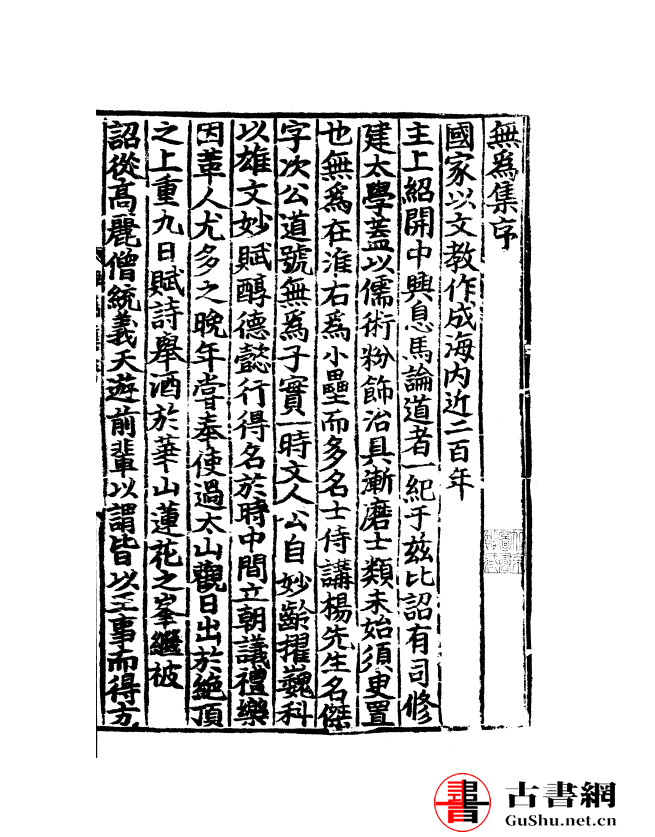 無爲集序
國家以文教作成海内近二百年
主上紹開中興息馬論道者一紀于兹比詔有司修
建太學蓋以儒術粉飾治具漸磨士類未始須臾置
也無爲在淮右爲小壘而多名士侍講楊先生名傑
字次公道號無爲子實一時文人公自妙齡擢巍科
以雄文妙賦醇德懿行得名於時中間立朝議禮樂
因革人尤多之晚年嘗奉使過太山觀日出於絶頂
之上重九日賦詩舉酒於華山蓮花之峯繼被
詔從高麗僧統義天遊前輩以謂皆以王事而得方
古書網
GuShu.net.cn